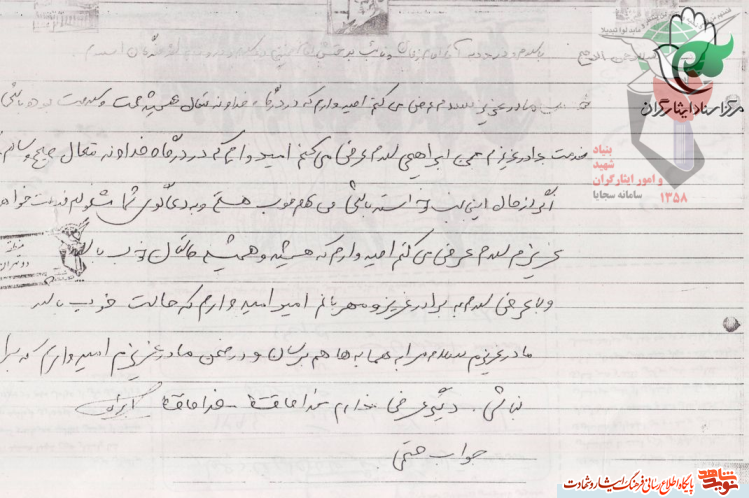 مرکز اسناد ایثارگران
بنیاد
شهید
و امور ایثارگران
سامانه سجایا
۱۳۵۸
خدمت مادر عزیزم سلام عرض می کنم امیدوارم که در درگاه خداوند تعال همیشه صحت و سلامت بوده باشی
خدمت برادر عزیزم ابراهیم سلام عرض می کنم امیدوارم که در درگاه خداوند متعال صحیح و سالم
اگر از حال اینجانب خواسته باشی من هم خوب هستم و به دعاگوی شما مشغولم خدمت خواهر
عزیزم سلام عرض می کنم امیدوارم که همیشه و همیشه حالتان خوب باشد
و با عرض سلام به برادر عزیز و مهربانم امید امیدوارم که حالت خوب باشد
مادر عزیزم سلام مرا به همسایه ها هم برسان و در ضمن مادر عزیزم امیدوارم که
نباشی . دیگر عرضی ندارم خداحافظ خداحافظ
جواب حتمی
نوید شاهد
پایگاه اطلاع رسانی فرهنگ ایثار و شهادت